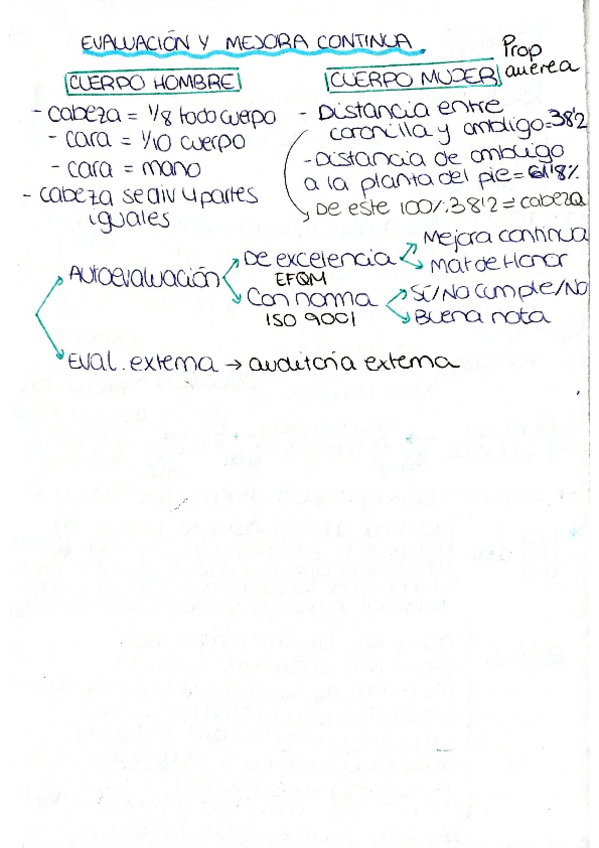 EVALUACIÓN Y MEJORA CONTINUA
Prop
áurea
CUERPO HOMBRE
- cabeza = 1/8 todo cuerpo
- cara = 1/10 cuerpo
- cara = mano
- cabeza se div 4 partes
iguales
CUERPO MUJER
- Distancia entre
coronilla y ombligo=38'2
- Distancia de ombligo
a la planta del pie = 61'8%
↳ De este 100%:38'2 = cabeza
Autoevaluación
De excelencia
EFQM
Mejora continua
Mat de Honor
Con norma
ISO 9001
Sí/No cumple/No
Buena nota
Eval. externa → auditoría externa